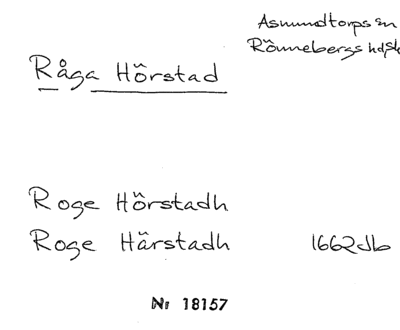 Asmundtorps sn
Rönnebergs hd, Sk
Råga Hörstad
Roge Hörstadh
Roge Härstadh 1662 db
Nr 18157